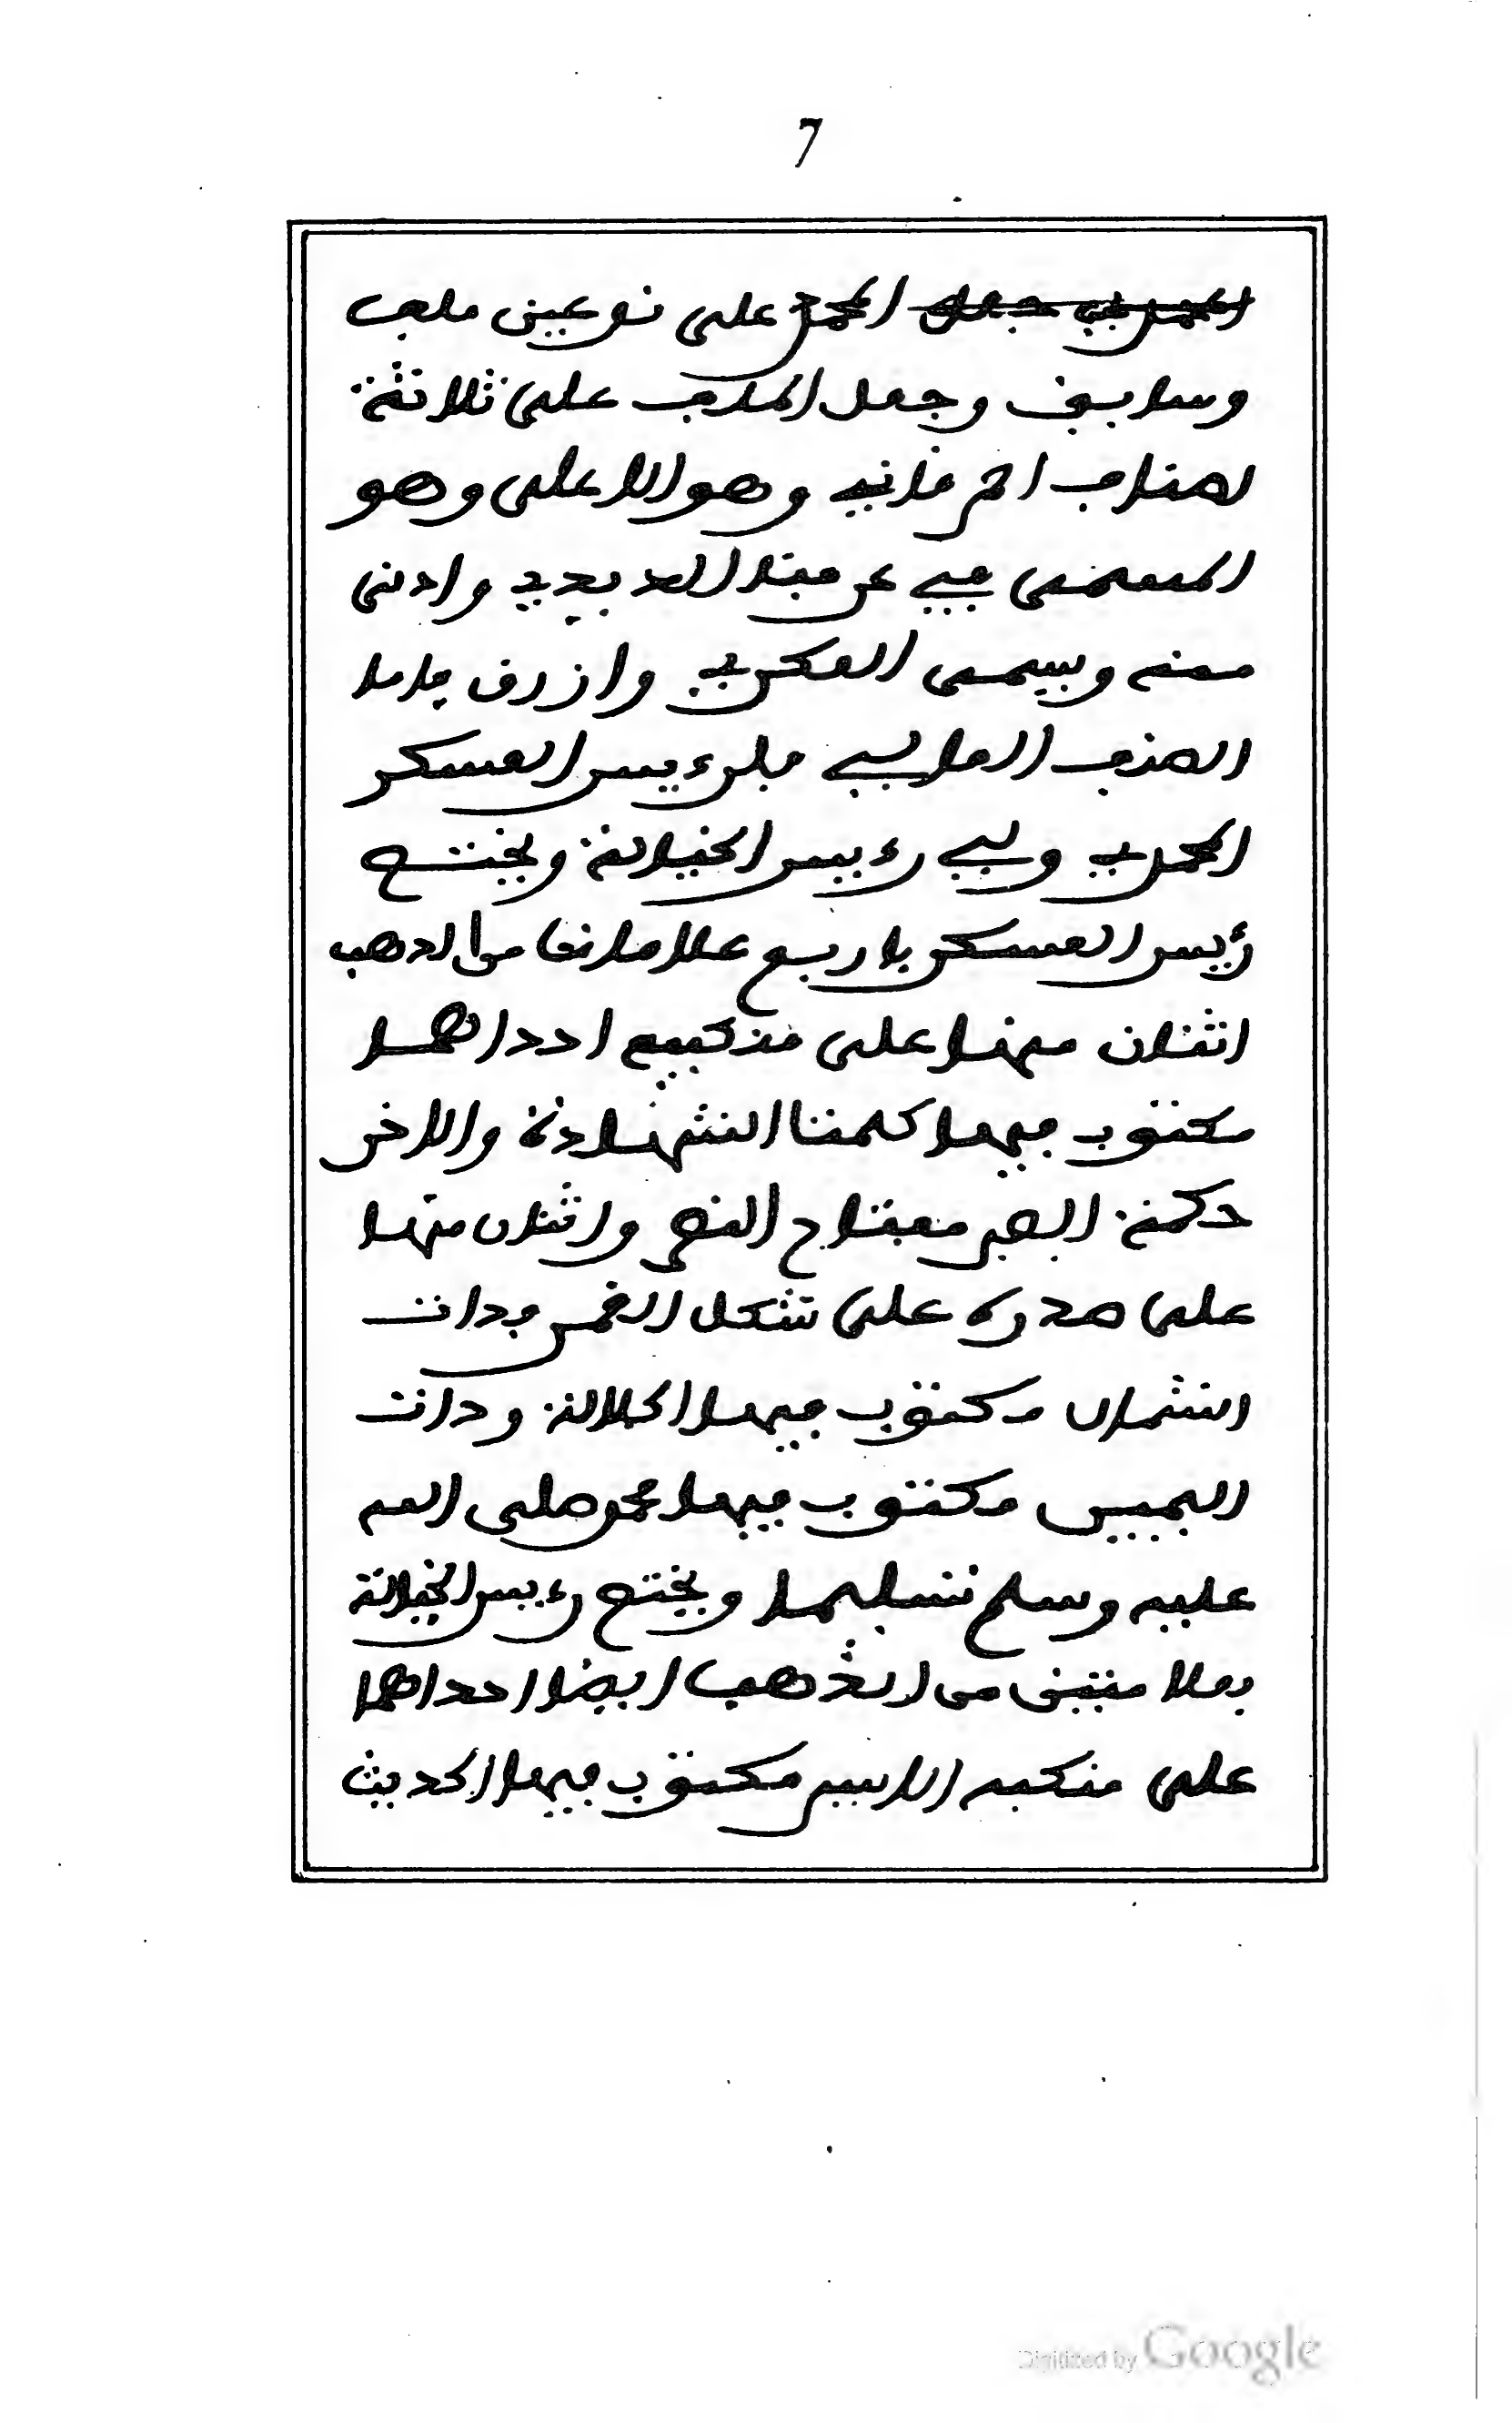 7
المحمدي جعل المحمد على نوعين ملف
وسايف وجعل الملف على ثلاثة
اصناف احمر قاني وهو الاعلى وهو
المسمى في عرفنا الحديدي وادنى
منه ويسمى العكري وازرق فاما
الصنف العالي فلرءيس العسكر
المحمدي ولي رءيس الخيالة ويختص
رئيس العسكر باربع علامات من الذهب
اثنان منها على منكبيه احداهما
مكتوب فيها كلمتا الشهادة والاخر
حكمة الصبر مفتاح النصر واثنان منها
على صدره على شكل القمر فذات
الشمال مكتوب فيها الجلالة وذات
اليمين مكتوب فيها محمد صلى الله
عليه وسلم تسليما ويختص رءيس الخيالة
بعلامتين من الذهب ايضا احداهما
على منكبه الايسر مكتوب فيها الحديث
Digitized by Google